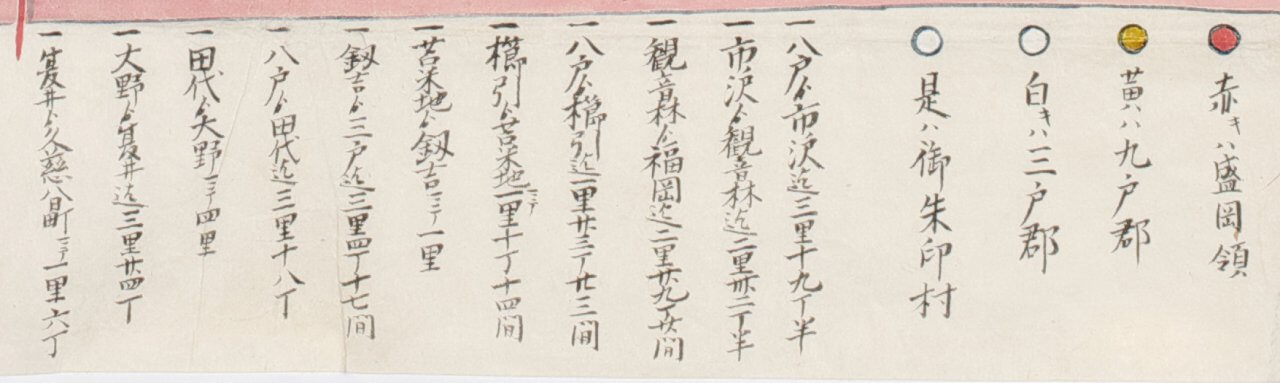 赤キハ盛岡領
黄ハ八九戸郡
白キハ三戸郡
是ハ御朱印村
一八戸ゟ市沢迄三里十九丁半
一市沢ゟ観音林迄二里卅二丁半
一観音林ゟ福岡迄二里廿九丁廿間
一八戸ゟ櫛引迄一里廿三丁廿三間
一櫛引ゟ苫米地ニテ一里十丁十四間
一苫米地ゟ釼吉ニテ一里
一釼吉ゟ三戸迄三里四丁十七間
一八戸ゟ田代迄三里十八丁
一田代ゟ大野ニテ四里
一大野ゟ夏井迄三里廿四丁
一夏井ゟ久慈八日町ニテ一里六丁